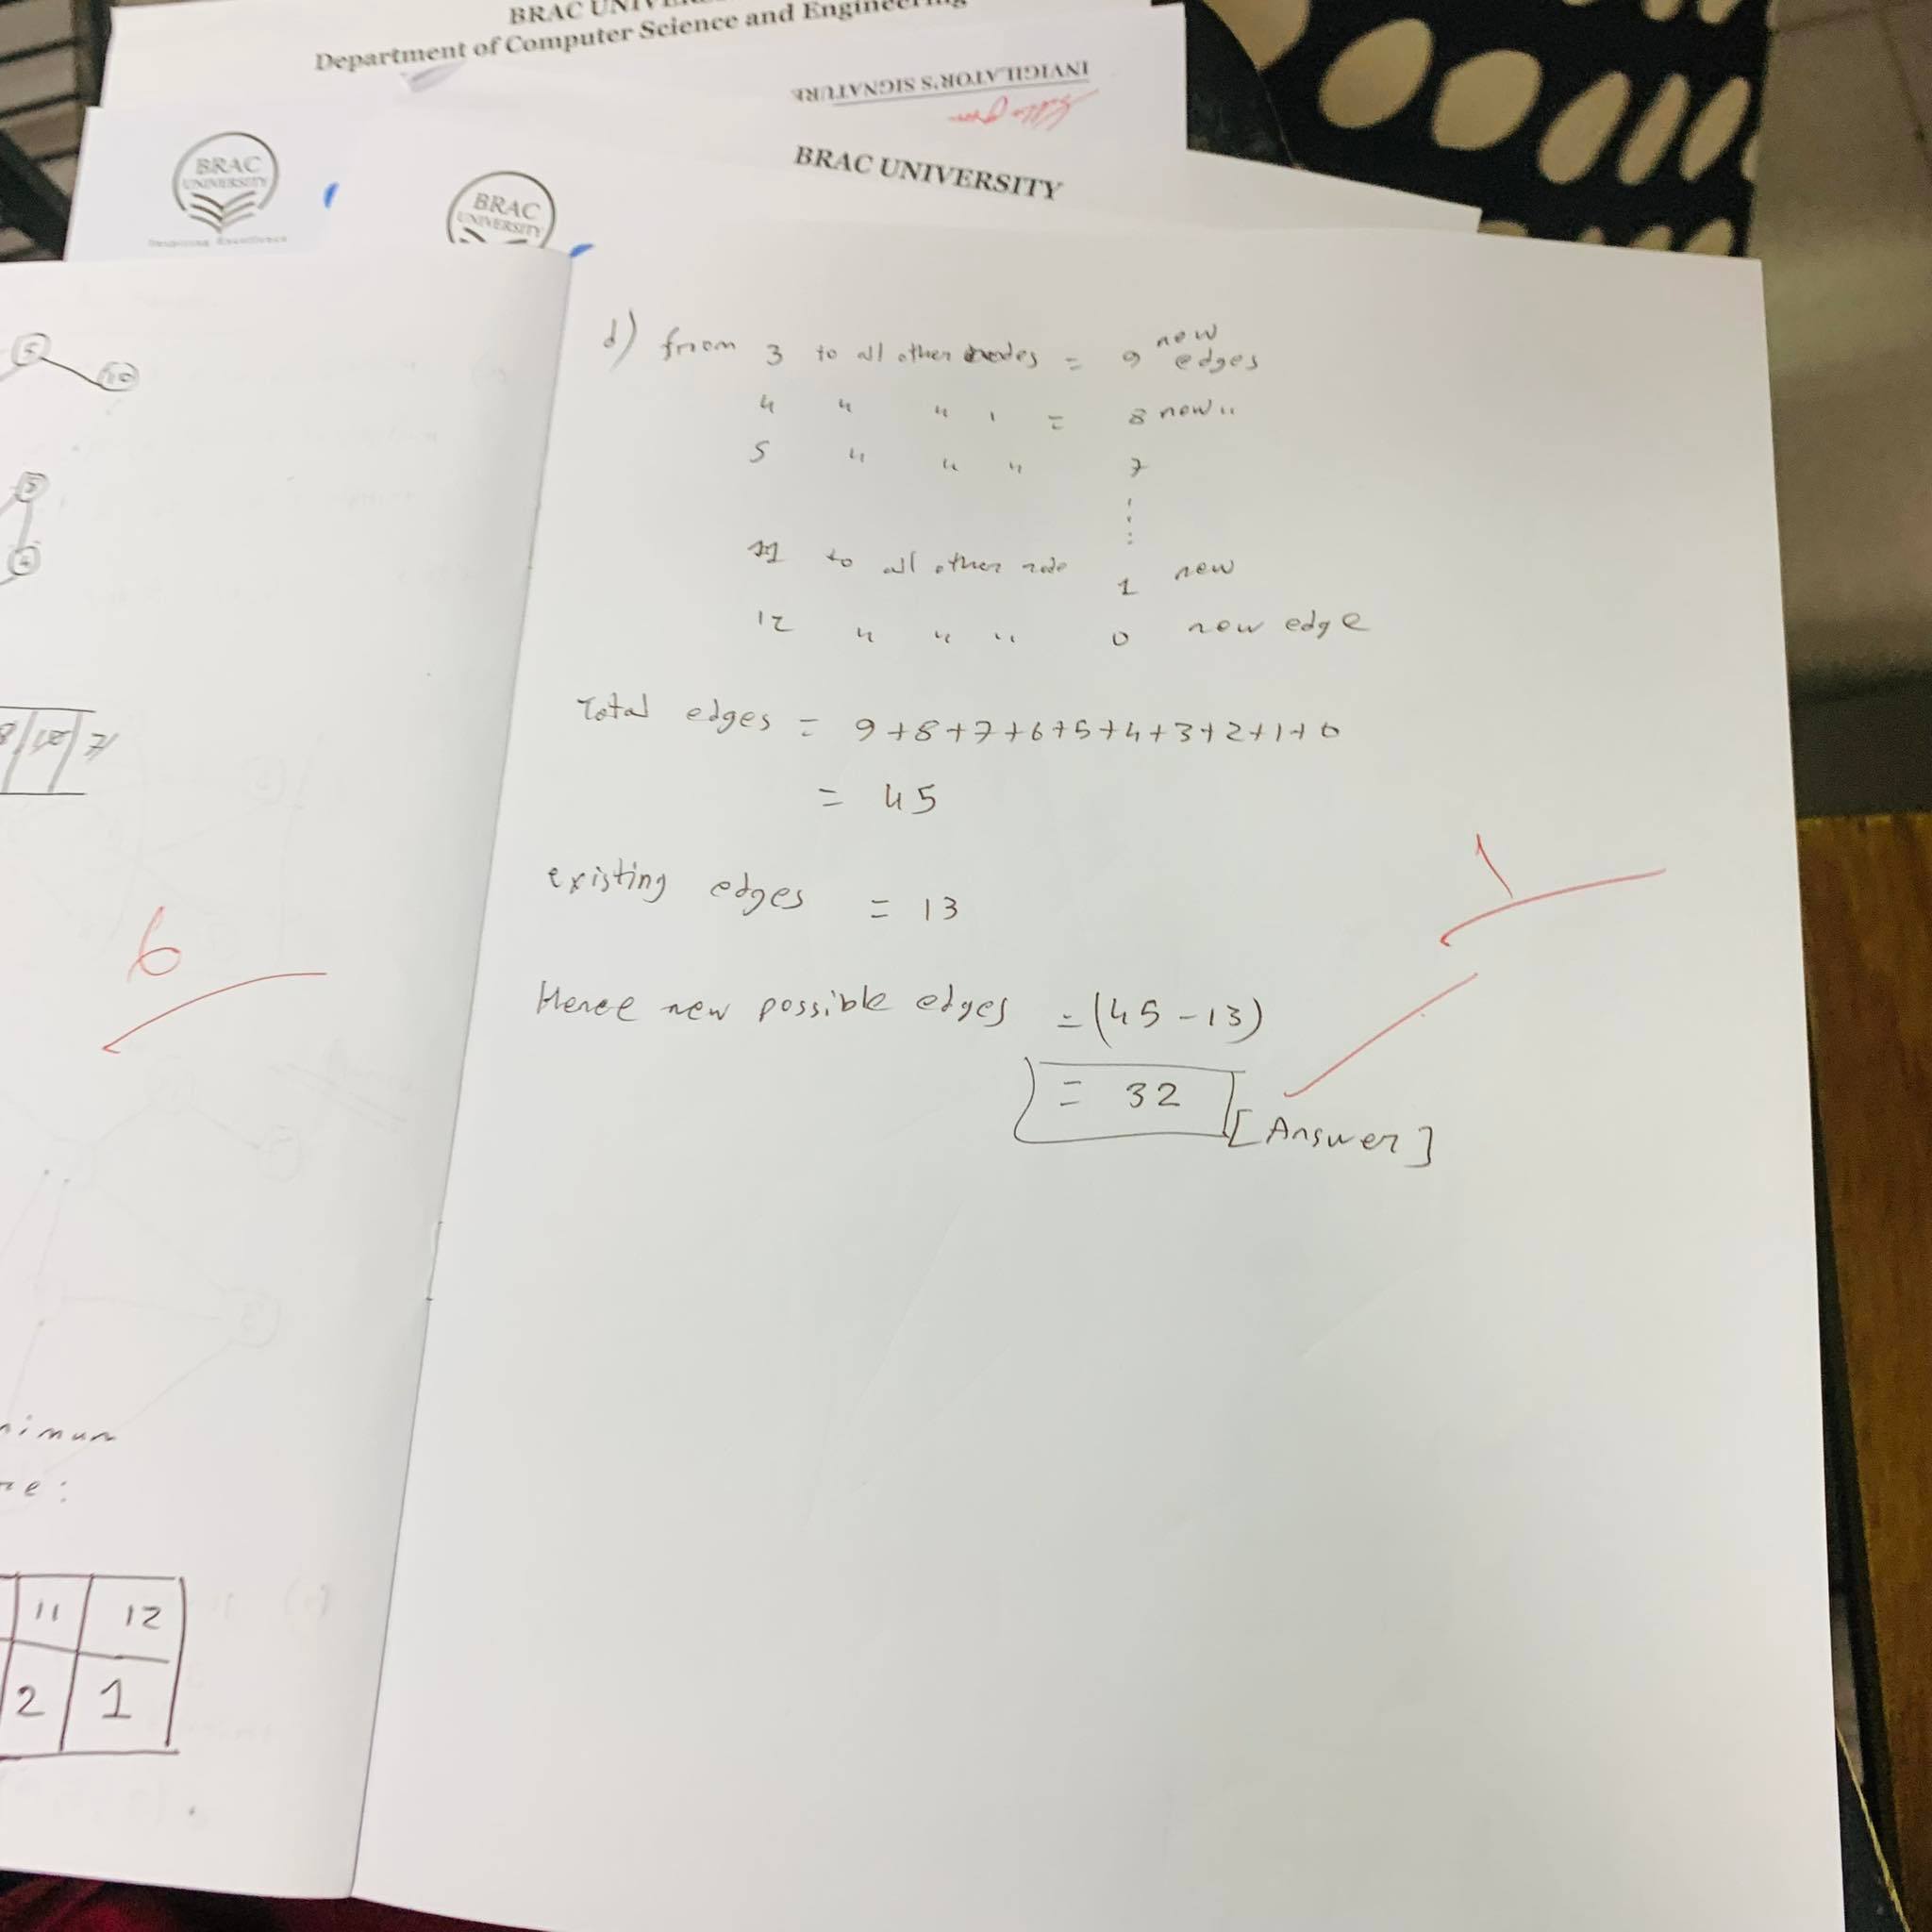 BRAC UNIVER
Department of Computer Science and Engineering
INVIGILATOR'S SIGNATURE
BRAC UNIVERSITY
BRAC
UNIVERSITY
Inspiring Excellence
BRAC
UNIVERSITY
5
10
5
4
8 7
6
nimum
re:
11 12
2 1
d) from 3 to all other nodes = 9 new edges
4 " " " = 8 new "
5 " " " 7
11 to all other node 1 new
12 " " " 0 new edge
Total edges = 9+8+7+6+5+4+3+2+1+0
= 45
existing edges = 13
1
Hence new possible edges = (45-13)
= 32 [Answer]